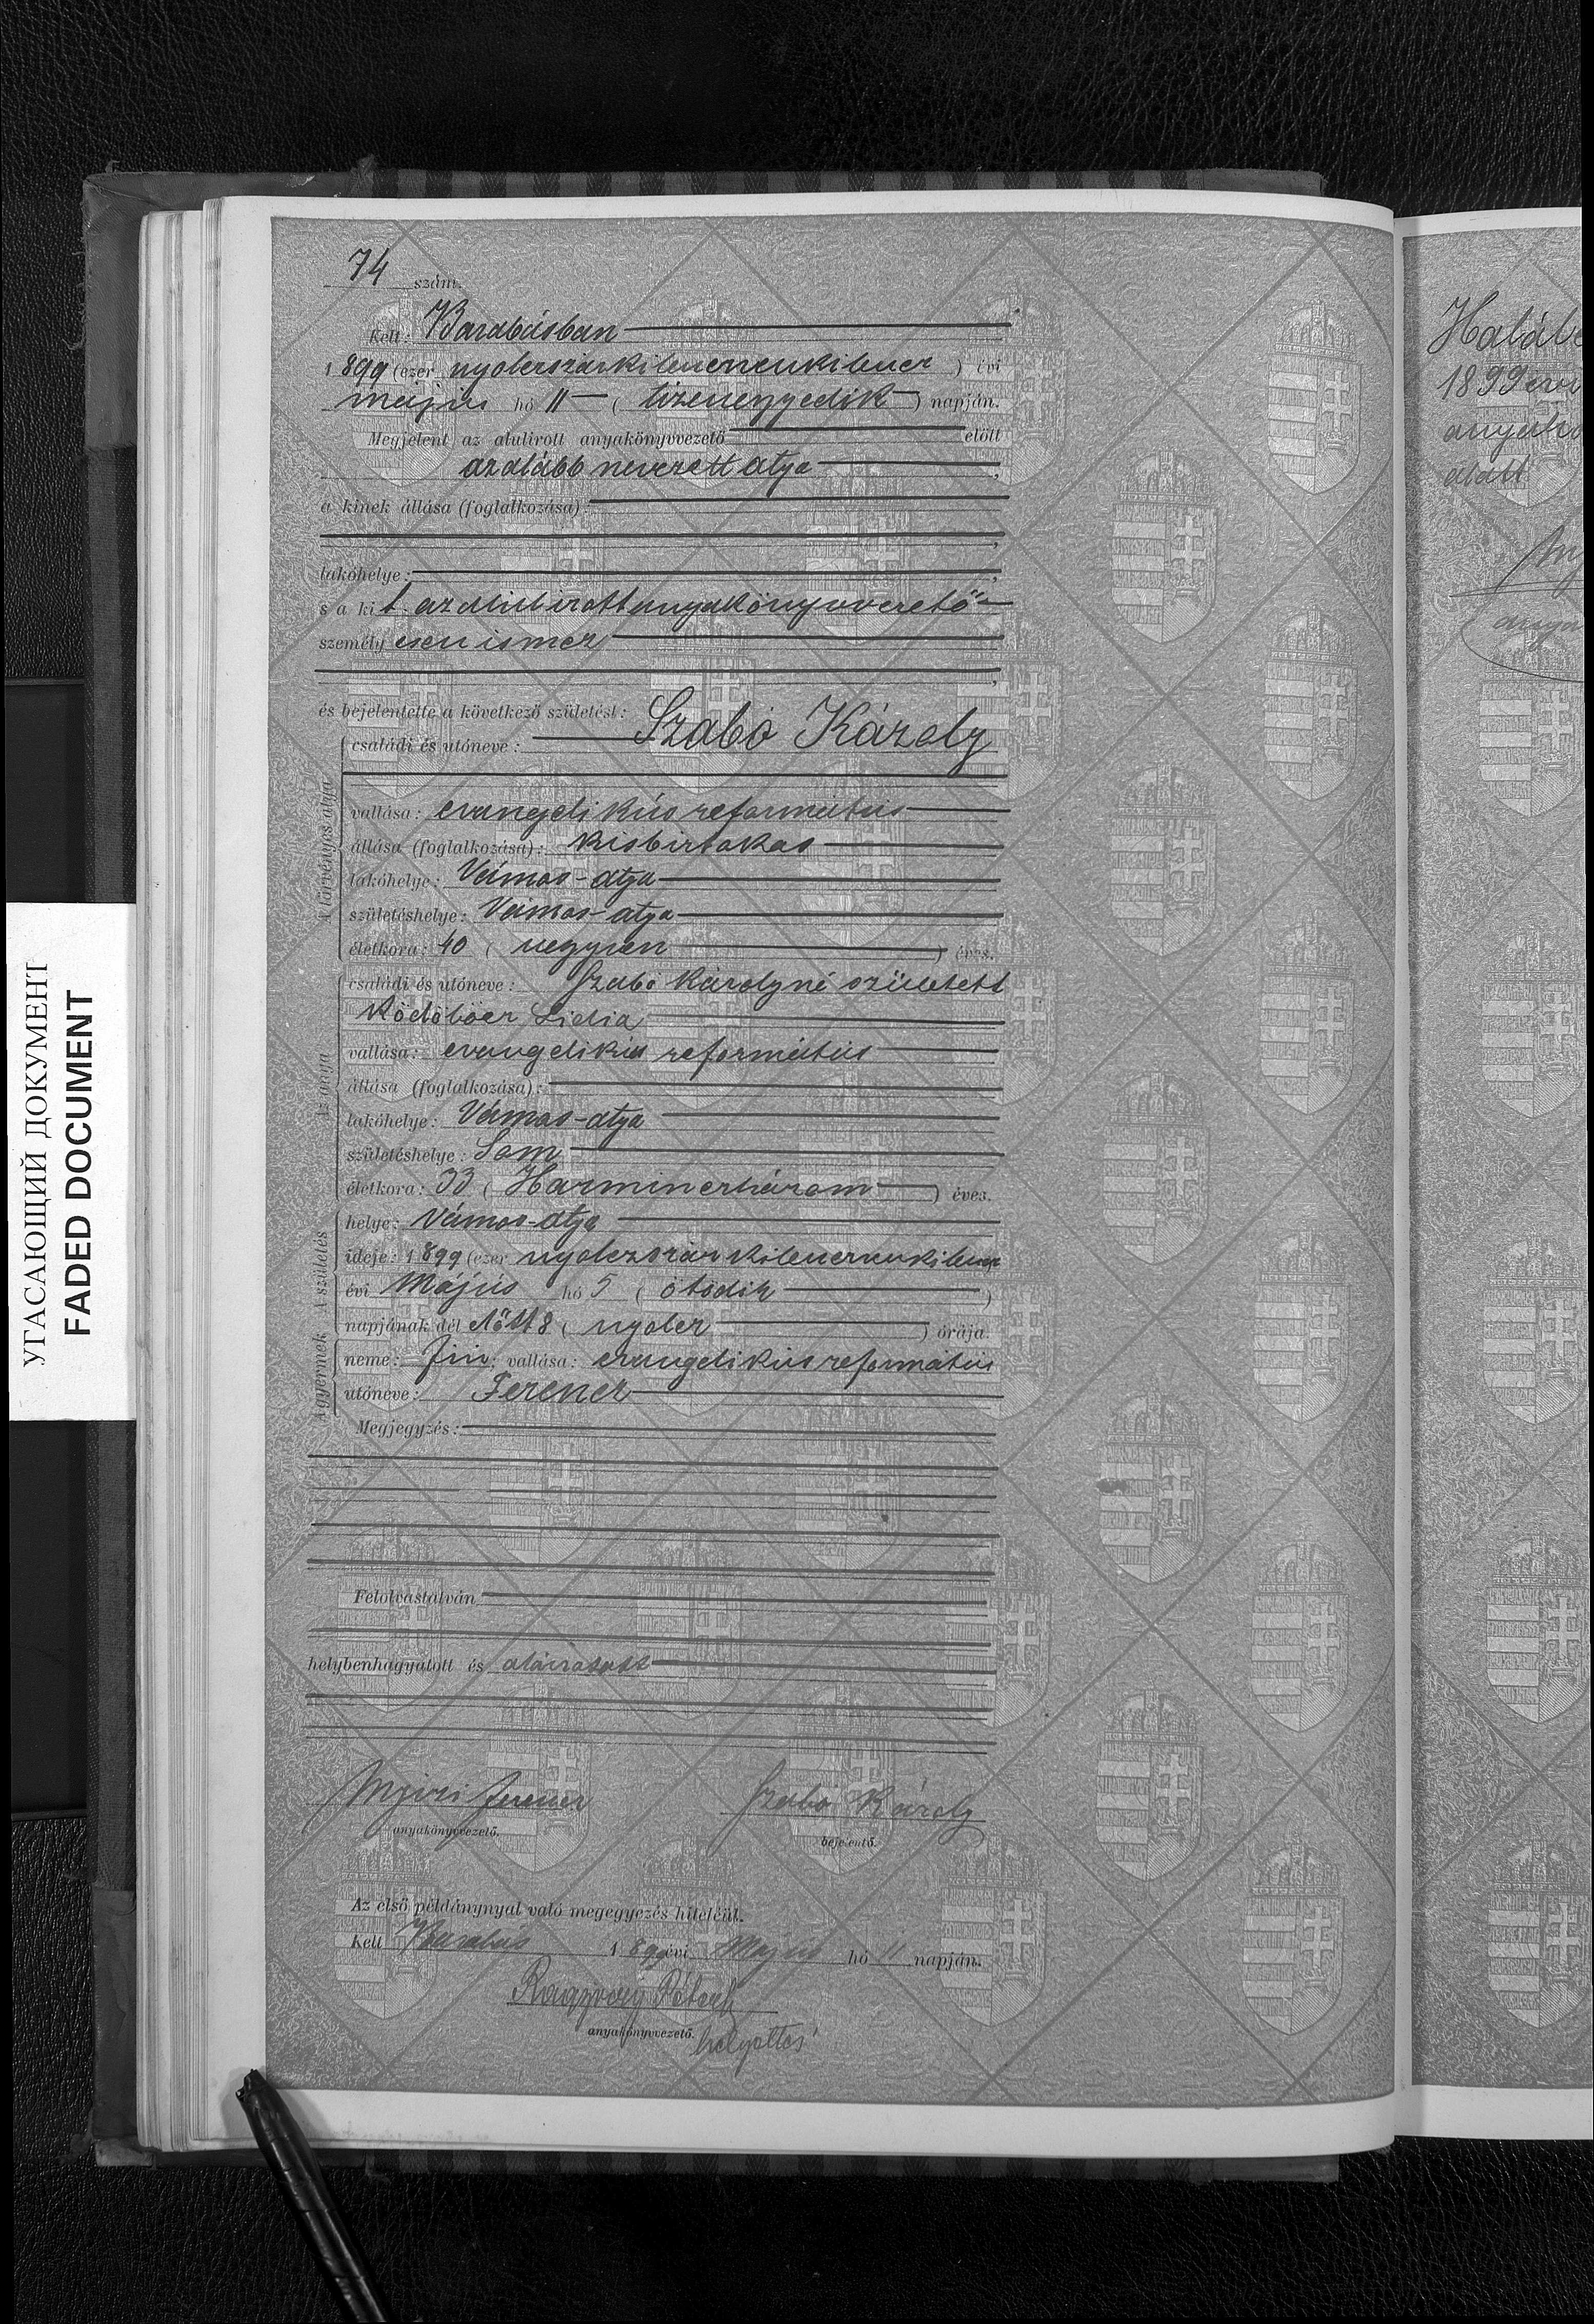 74 szám.
Kelt: Barabásban
1899 (ezer nyolczszázkilenczvenkilencz) évi
május hó 11 (tizenegyedik) napján.
Megjelent az alulirott anyakönyvvezető előtt
azalább nevezett atya,
a kinek állása (foglalkozása):
,
lakóhelye: ,
s a kit azalulirott anyakönyvvezető
személyesen ismer
,
és bejelentette a következő születést:
A törvényes atya
családi és utóneve: Szabó Károly
vallása: evangelikus református
állása (foglalkozása): kisbirtokos
lakóhelye: Vámos-atya
születéshelye: Vámos-atya
életkora: 40 (negyven) éves.
Az anya
családi és utóneve: Szabó Károlyné született
Ködöböcz Lidia
vallása: evangelikus református
állása (foglalkozása):
lakóhelye: Vámos-atya
születéshelye: Som
életkora: 33 (Harminczhárom) éves.
A születés
helye: Vámos-atya
ideje: 1899 (ezer nyolczszázkilenczvenkilencz
évi Május hó 5 (ötödik)
napjának dél előtt 8 (nyolcz) órája.
A gyermek
neme: fiu; vallása: evangelikus református
utóneve: Ferencz
Megjegyzés:
Felolvastatván,
helybenhagyatott és aláiratott
Nyiri Ferencz Szabo Károly
anyakönyvvezető. bejelentő.
Az első példánynyal való megegyezés hiteléül.
Kelt Barabás 1899 évi Május hó 11 napján.
anyakönyvvezető. helyettes
Halále
1899 évi
anyakö
alatt
Ny
anya
УГАСАЮЩИЙ ДОКУМЕНТ
FADED DOCUMENT